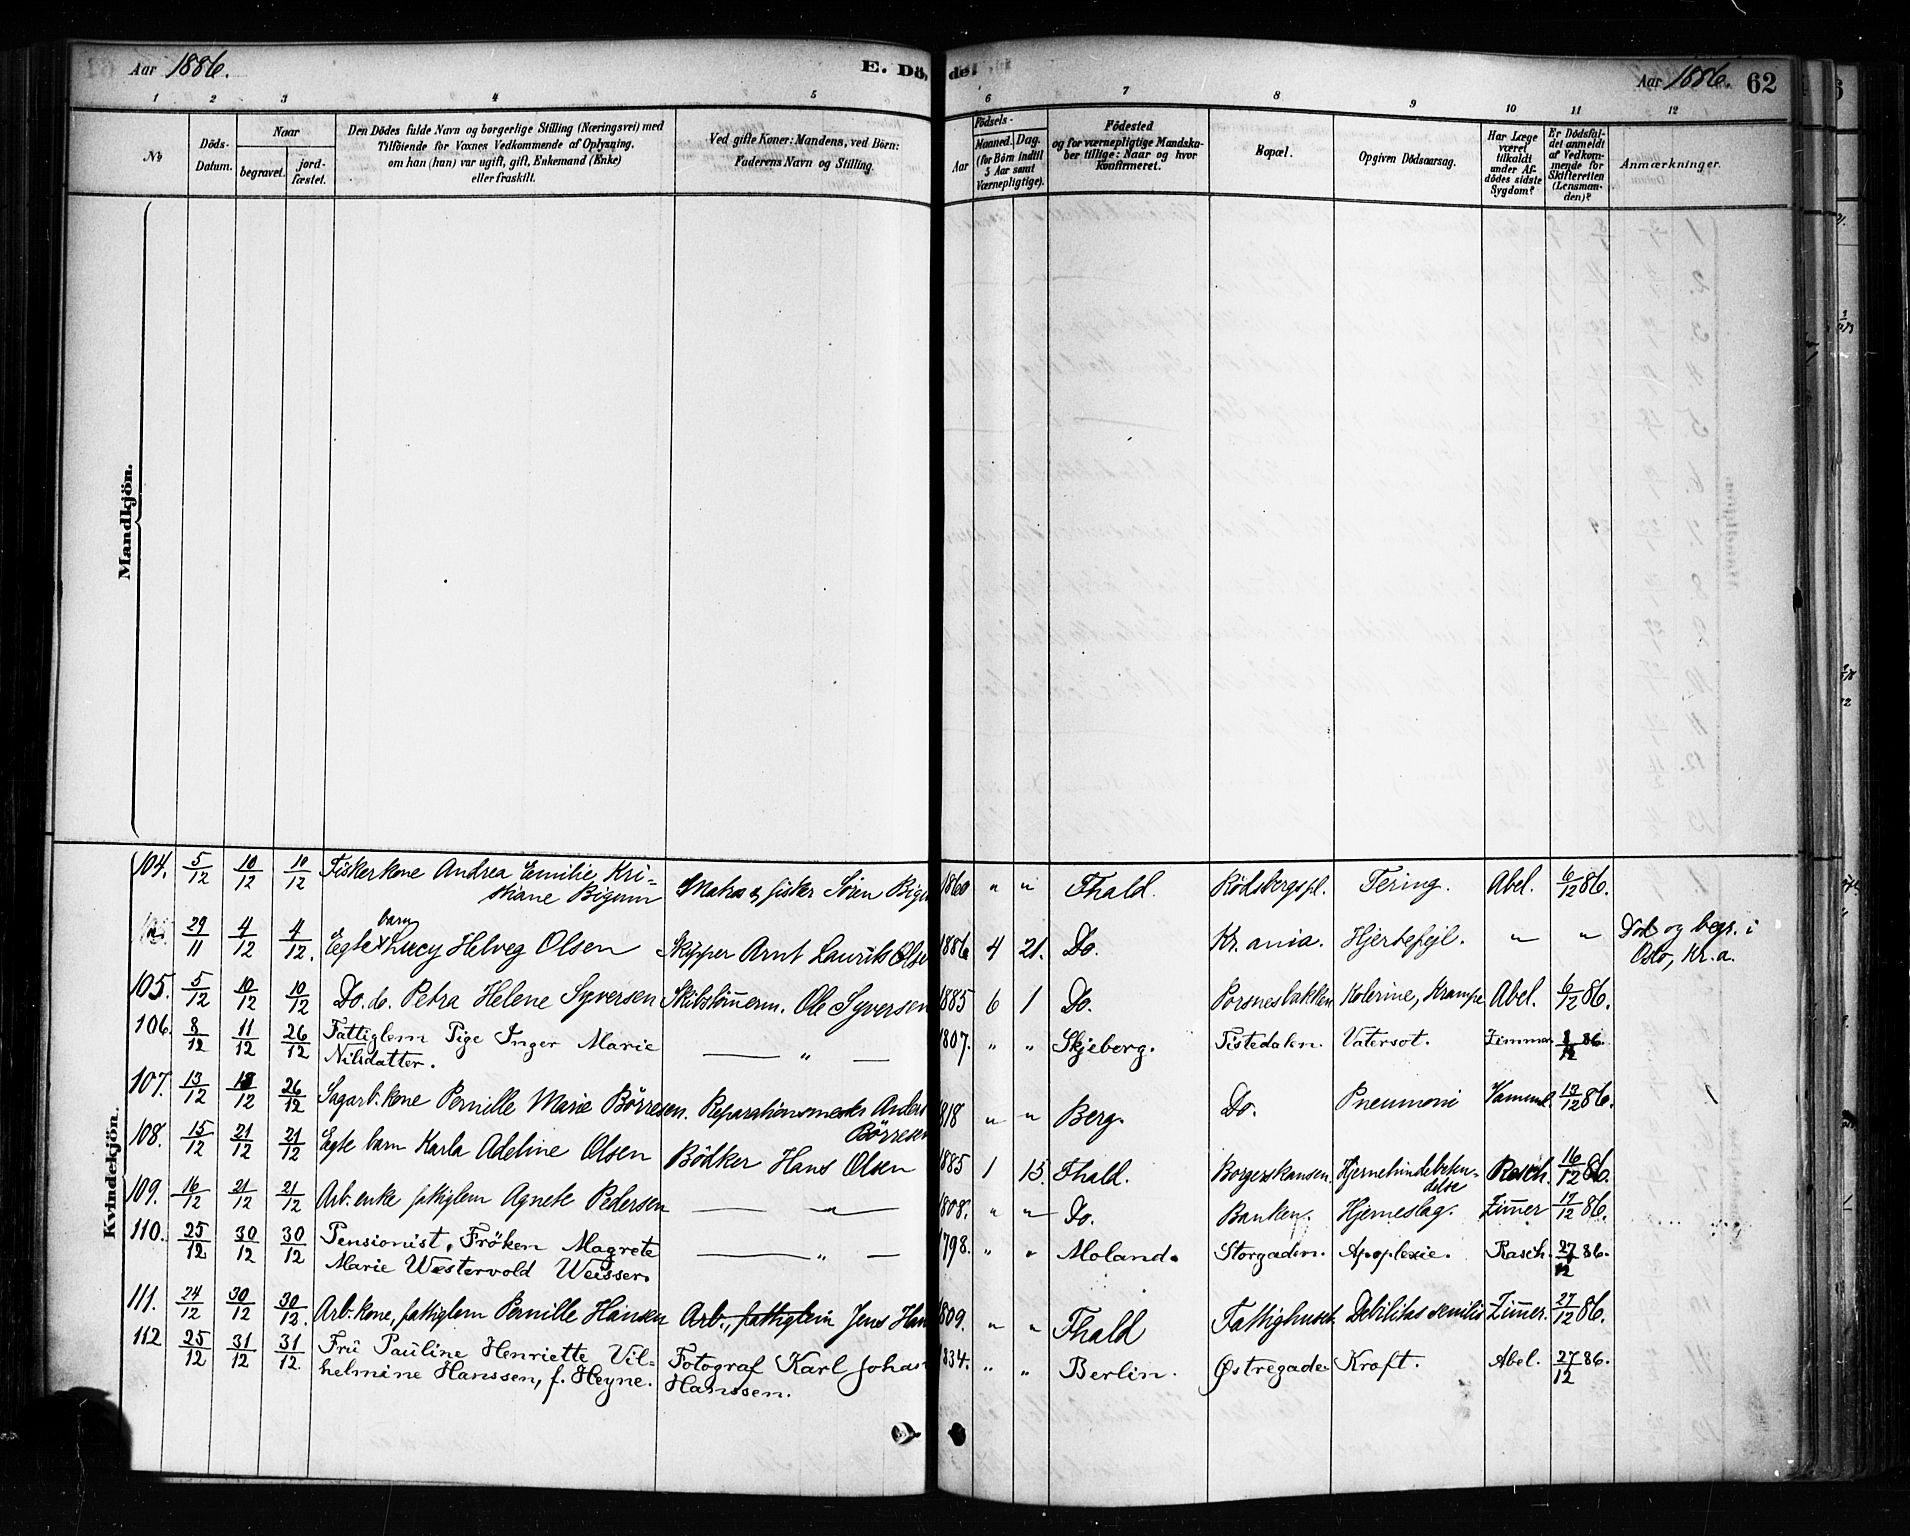 Aar 1886. E. Dö, del Aar 1886. 62
1 2 3 4 5 6 7 8 9 10 11 12
No
Döds-
Datum.
Naar
begravet.
jord-
fæstet.
Den Dödes fulde Navn og borgerlige Stilling (Næringsvei) med
Tilföiende for Voxnes Vedkommende af Oplysning,
om han (hun) var ugift, gift, Enkemand (Enke)
eller fraskilt.
Ved gifte Koner: Mandens, ved Börn:
Faderens Navn og Stilling.
Födsels-
Aar
Maaned. Dag.
(for Börn indtil
5 Aar samt
Værnepligtige).
Födested
og for værnepligtige Mandska-
ber tillige: Naar og hvor
konfirmeret.
Bopæl.
Opgiven Dödsaarsag.
Har Læge
været
tilkaldt
under Af-
dödes sidste
Sygdom?
Er Dödsfal-
det anmeldt
af Vedkom-
mende for
Skifteretten
(Lensman-
den)?
Anmærkninger.
Mandkjön.
Kvindekjön.
104. 5/12 10/12 10/12 Fiskerkone Andrea Emilie Kri-
stiane Bigum Matros & fisker Sören Bigu 1860 " " Fhald. Rödsbergspl. Tering. Abel. 6/12 86.
29/11 4/12 4/12. Egte barn Lucy Helveg Olsen Skipper Arnt Laurits Olse 1886 4 21. Do. Kr.ania. Hjertefejl. " " Död og begr. i
Oslo, Kr.a.
105. 5/12 10/12 10/12 Do. do. Petra Helene Syversen Skibstömerm. Ole Syversen 1885 6 1 Do. Porsnesbakken Kolerine, Krampe Abel. 6/12 86.
106. 8/12 11/12 26/12 Fattiglem Pige Inger Marie
Nilsdatter. — " — 1807. " " Skjeberg. Tistedalen. Vatersot. Zimmer 86.
107. 13/12 26/12 Sagarb.kone Pernille Marie Börresen. Reparationsmester Anders
Börresen 818 " " Berg. Do. Pneumoni 13/12 86.
108. 15/12 21/12 21/12 Egte barn Karla Adeline Olsen Bödker Hans Olsen 1885 1 15. Fhald. Borgerskansen. Hjernehindebeten-
delse Rasch. 16/12 86.
109. 16/12 21/12 21/12 Arb. enke fattiglem Agnete Pedersen — " — 1808. " " Do. Banken. Hjerneslag. Zimer 17/12 86.
110. 25/12 30/12 30/12 Pensionist, Fröken Magrete
Marie Westervold Weisser. — " — 1798. " " Moland. Storgaden. Apoplexie. Rasch. 27/12 86.
111. 24/12 30/12 30/12. Arb. kone, fattiglem Pernille Hansen Arb., fattiglem Jens Han 1809. " " Fhald Fattighuset. Debilitas senilis Zimer. 27/12 86.
112 25/12 31/12 31/12 Frü Pauline Henriette Vil-
helmine Hanssen, f. Heyne. Fotograf Karl Johan
Hanssen. 1834. " " Berlin. Østregade Kræft. Abel. 27/12 86.